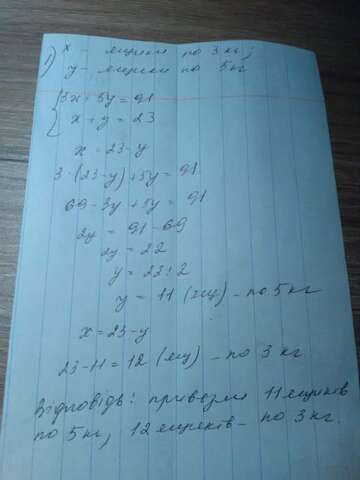 1) x - ящики по 3 кг;
y - ящики по 5 кг
{3x + 5y = 91
x + y = 23
x = 23 - y
3 · (23 - y) + 5y = 91
69 - 3y + 5y = 91
2y = 91 - 69
2y = 22
y = 22 : 2
y = 11 (ящ) - по 5 кг
x = 23 - y
23 - 11 = 12 (ящ) - по 3 кг
Відповідь: привезли 11 ящиків
по 5 кг, 12 ящиків - по 3 кг.